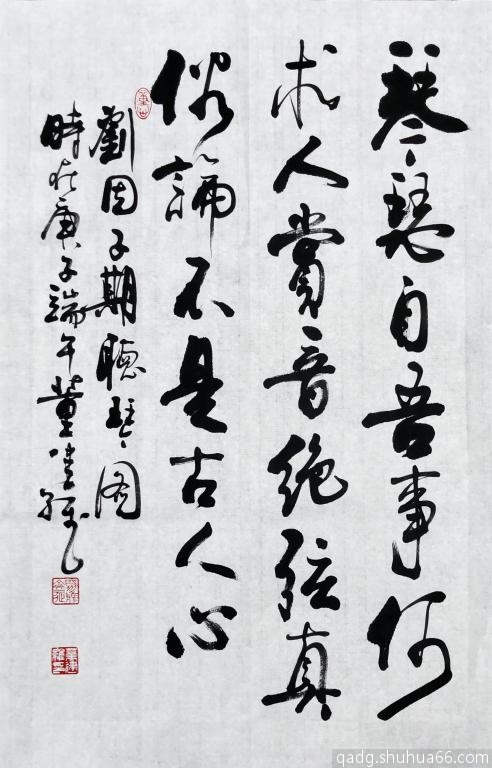 琴瑟自吾事何
求人賞音絶弦真
俗論不是古人心
劉因子期聽琴圖
時在庚子端午董
qadg.shuhua66.com